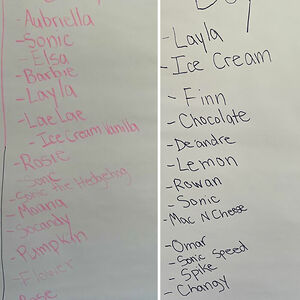 - Aubriella
- Sonic
- Elsa
- Barbie
- Layla
- LaeLae
- Ice Cream Vanilla
- Rosie
- Sonic
- Sonic the Hedgehog
- Moana
- Socandy
- Pumpkin
- Flower
- Rosie
- Layla
- Ice Cream
- Finn
- Chocolate
- De'andre
- Lemon
- Rowan
- Sonic
- Mac N Cheese
- Omar
- Sonic Speed
- Spike
- Changy